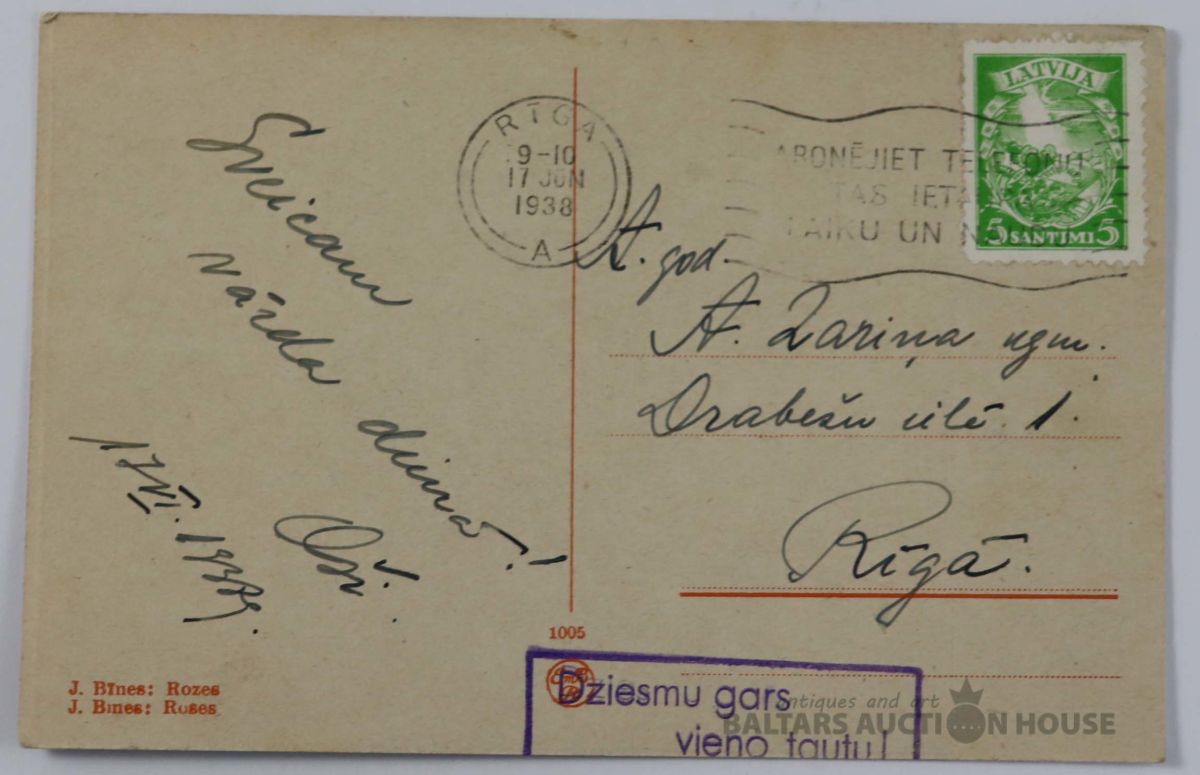 Sveicam
vārda
dienā!
Oši.
17 VI. 1938g.
RĪGA
9-10
17 JUN
1938
A
ABONĒJIET TELEFONU
TAS
LAIKU UN
LATVIJA
5 SANTIMI 5
A. god.
A. Zariņa kgm.
Drabešu ielā 1.
Rīgā.
1005
J. Bīnes: Rozes
J. Bines: Roses
Dziesmu gars
vieno tautu!
Antiques and art
BALTARS AUCTION HOUSE